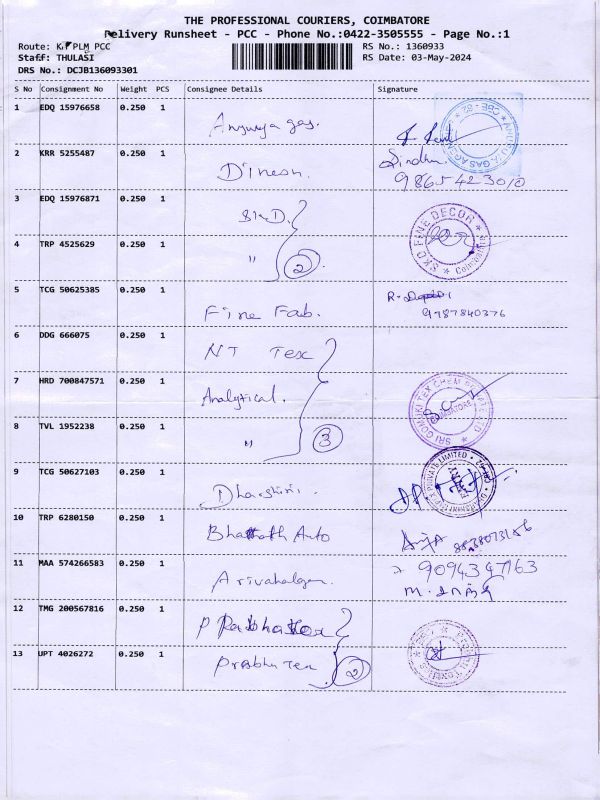 THE PROFESSIONAL COURIERS, COIMBATORE
Delivery Runsheet - PCC - Phone No.:0422-3505555 - Page No.:1
Route: KP PLM PCC RS No.: 1360933
Staff: THULASI RS Date: 03-May-2024
DRS No.: DCJB136093301
S No Consignment No Weight PCS Consignee Details Signature
1 EDQ 15976658 0.250 1 Anusuya gas.
2 KRR 5255487 0.250 1 Dinesh. Sindhu.
9865423010
3 EDQ 15976871 0.250 1 SKD. SKD FINE DECOR * Coimbatore
4 TRP 4525629 0.250 1 " 2
5 TCG 50625385 0.250 1 Fine Fab.
9787840376
6 DDG 666075 0.250 1 NT Tex
7 HRD 700847571 0.250 1 Analytical.
8 TVL 1952238 0.250 1 " 3
9 TCG 50627103 0.250 1 Dharshini.
10 TRP 6280150 0.250 1 Bharath Auto
11 MAA 574266583 0.250 1 9094347163
12 TMG 200567816 0.250 1 P Prabhakar
13 UPT 4026272 0.250 1 Prabhu Tex 2